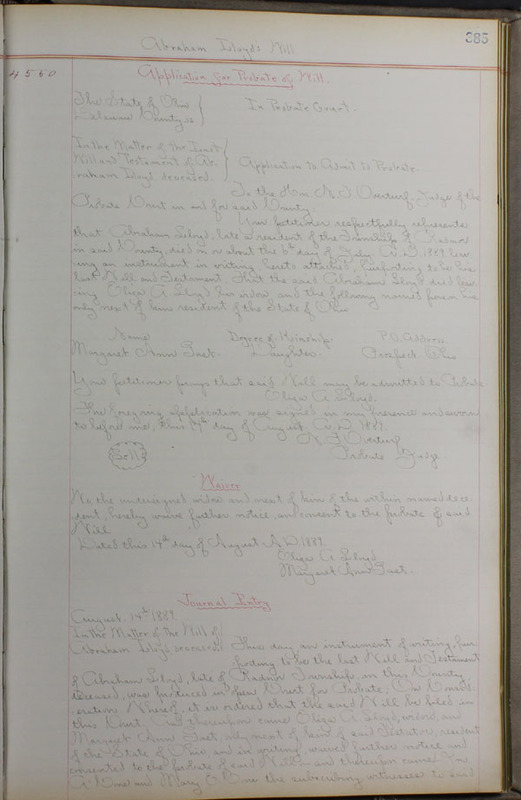 385
Abraham Lloyd's Will
4560
Application for Probate of Will.
The State of Ohio
Delaware County, ss
In Probate Court.
In the Matter of the Last
Will and Testament of Ab-
raham Lloyd, deceased.
Application to Admit to Probate.
To the Hon N. F. Overturf, Judge of the
Probate Court in and for said County.
Your petitioner respectfully represents
that Abraham Lloyd, late a resident of the Township of Radnor
in said County, died on or about the day of July A. D. 1889 leav-
ing an instrument in writing, hereto attached, purporting to be his
last Will and Testament, that the said Abraham Lloyd died leav-
ing Eliza A Lloyd his widow and the following named person his
only next of kin resident of the State of Ohio
Name Degree of Kinship. P.O. Address.
Margaret Ann Daughter. Prospect, Ohio
Your petitioner prays that said Will may be admitted to Probate
Eliza A Lloyd.
The foregoing application was signed in my presence and sworn
to before me, this 14th day of August A. D. 1889.
N. F. Overturf
Seal
Probate Judge
Waiver
We the undersigned widow and next of kin of the within named dece-
dent, hereby waive further notice, and consent to the probate of said
Will.
Dated this 14th day of August A.D. 1889.
Eliza A Lloyd
Margaret Ann
Journal Entry
August 14th 1889.
In the Matter of the Will of
Abraham Lloyd deceased
This day an instrument of writing, pur-
porting to be the last Will and Testament
of Abraham Lloyd, late of Radnor Township in this County,
deceased, was produced in open Court for Probate; On Consid-
eration Whereof, it is ordered that the said Will be filed in
this Court. And thereupon came Eliza A Lloyd, widow, and
Margaret Ann only next of kin of said Testator, resident
of the State of Ohio and in writing waived further notice and
consented to the probate of said Will and thereupon came
and Mary the subscribing witnesses to said